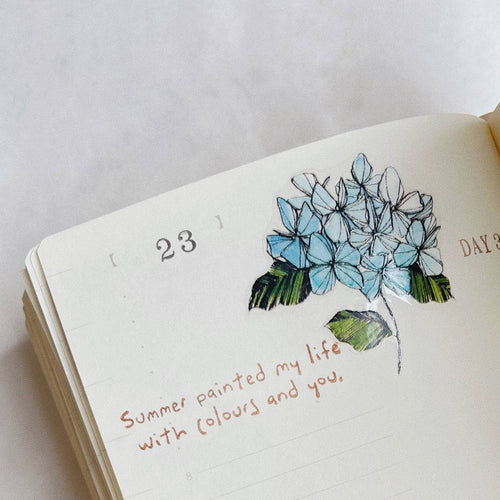 [ 23 ]
DAY 3
Summer painted my life
with colours and you.
8